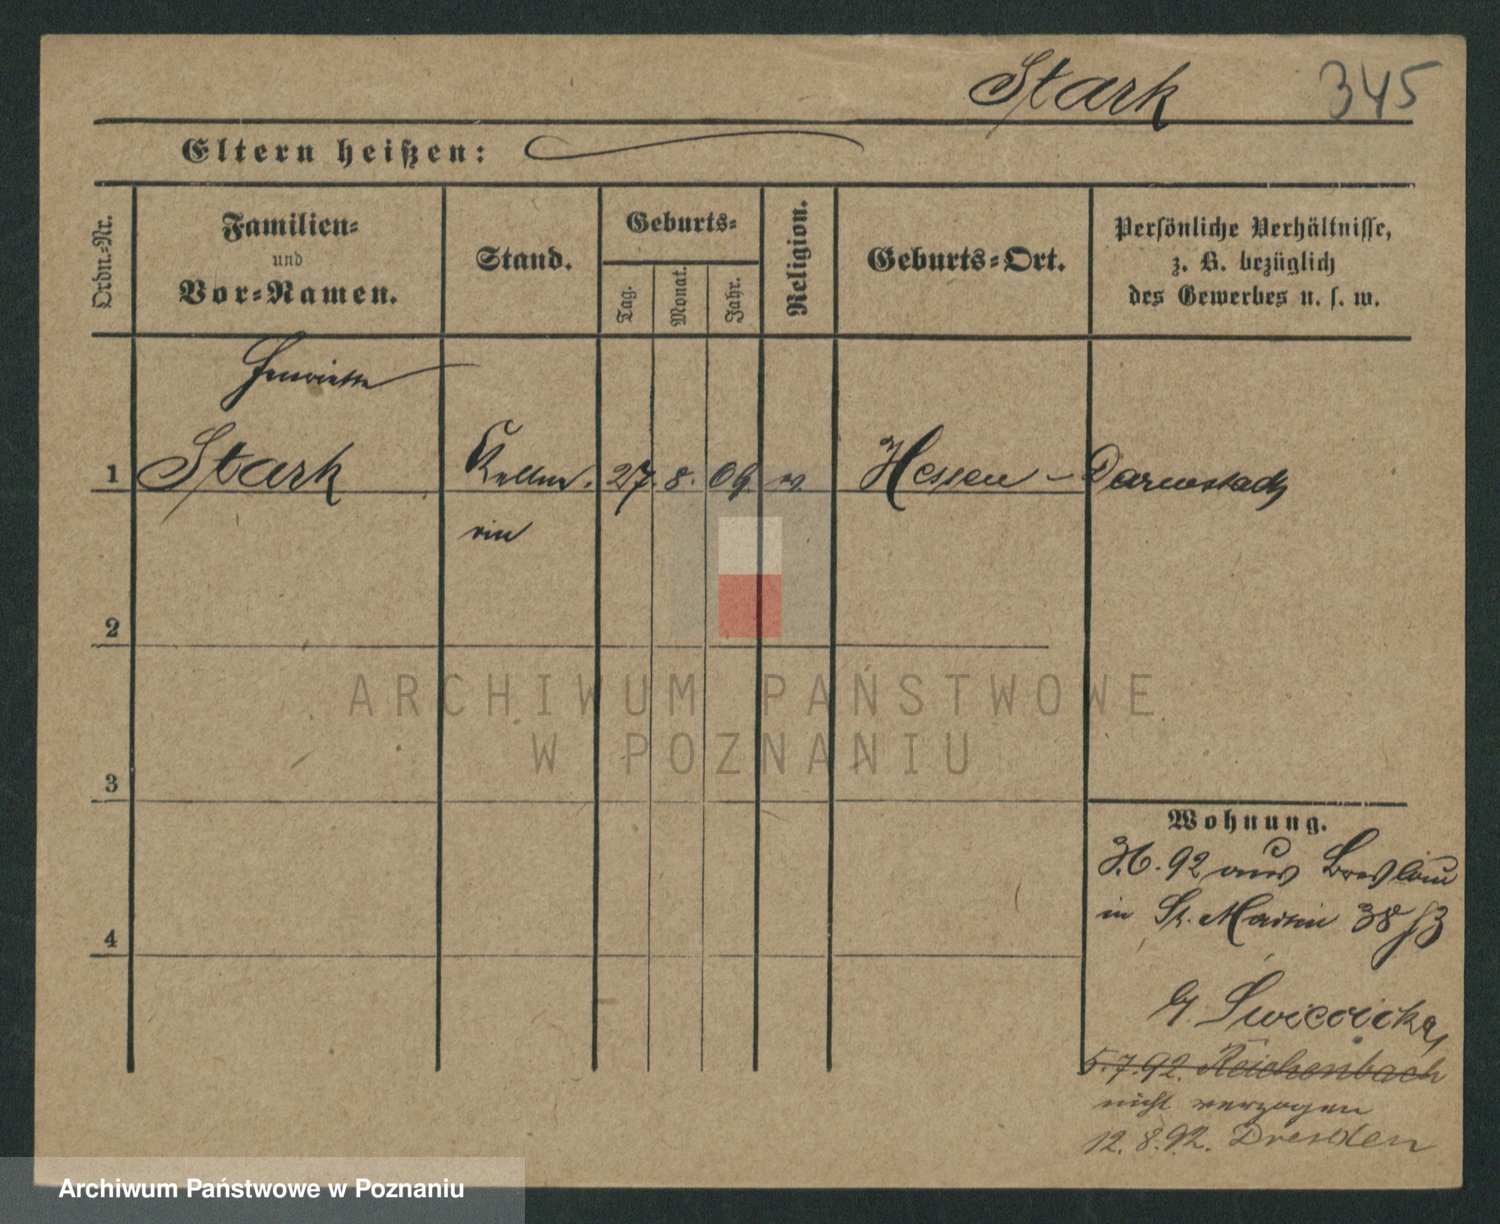 Stark 345
Eltern heißen:
Ordn.-Nr.
Familien-
und
Vor-Namen.
Stand.
Geburts-
Tag.
Monat.
Jahr.
Religion.
Geburts-Ort.
Persönliche Verhältnisse,
z. B. bezüglich
des Gewerbes u. s. w.
Henriette
1 Stark Kellne- 27. 8. 69. Hessen - Darmstadt
rin
2
ARCHIWUM PAŃSTWOWE
W POZNANIU
3
Wohnung.
92 aus Breslau
in St. Martin 38
4
5.7.92. Reichenbach
nicht verzogen
12.8.92. Dresden
Archiwum Państwowe w Poznaniu